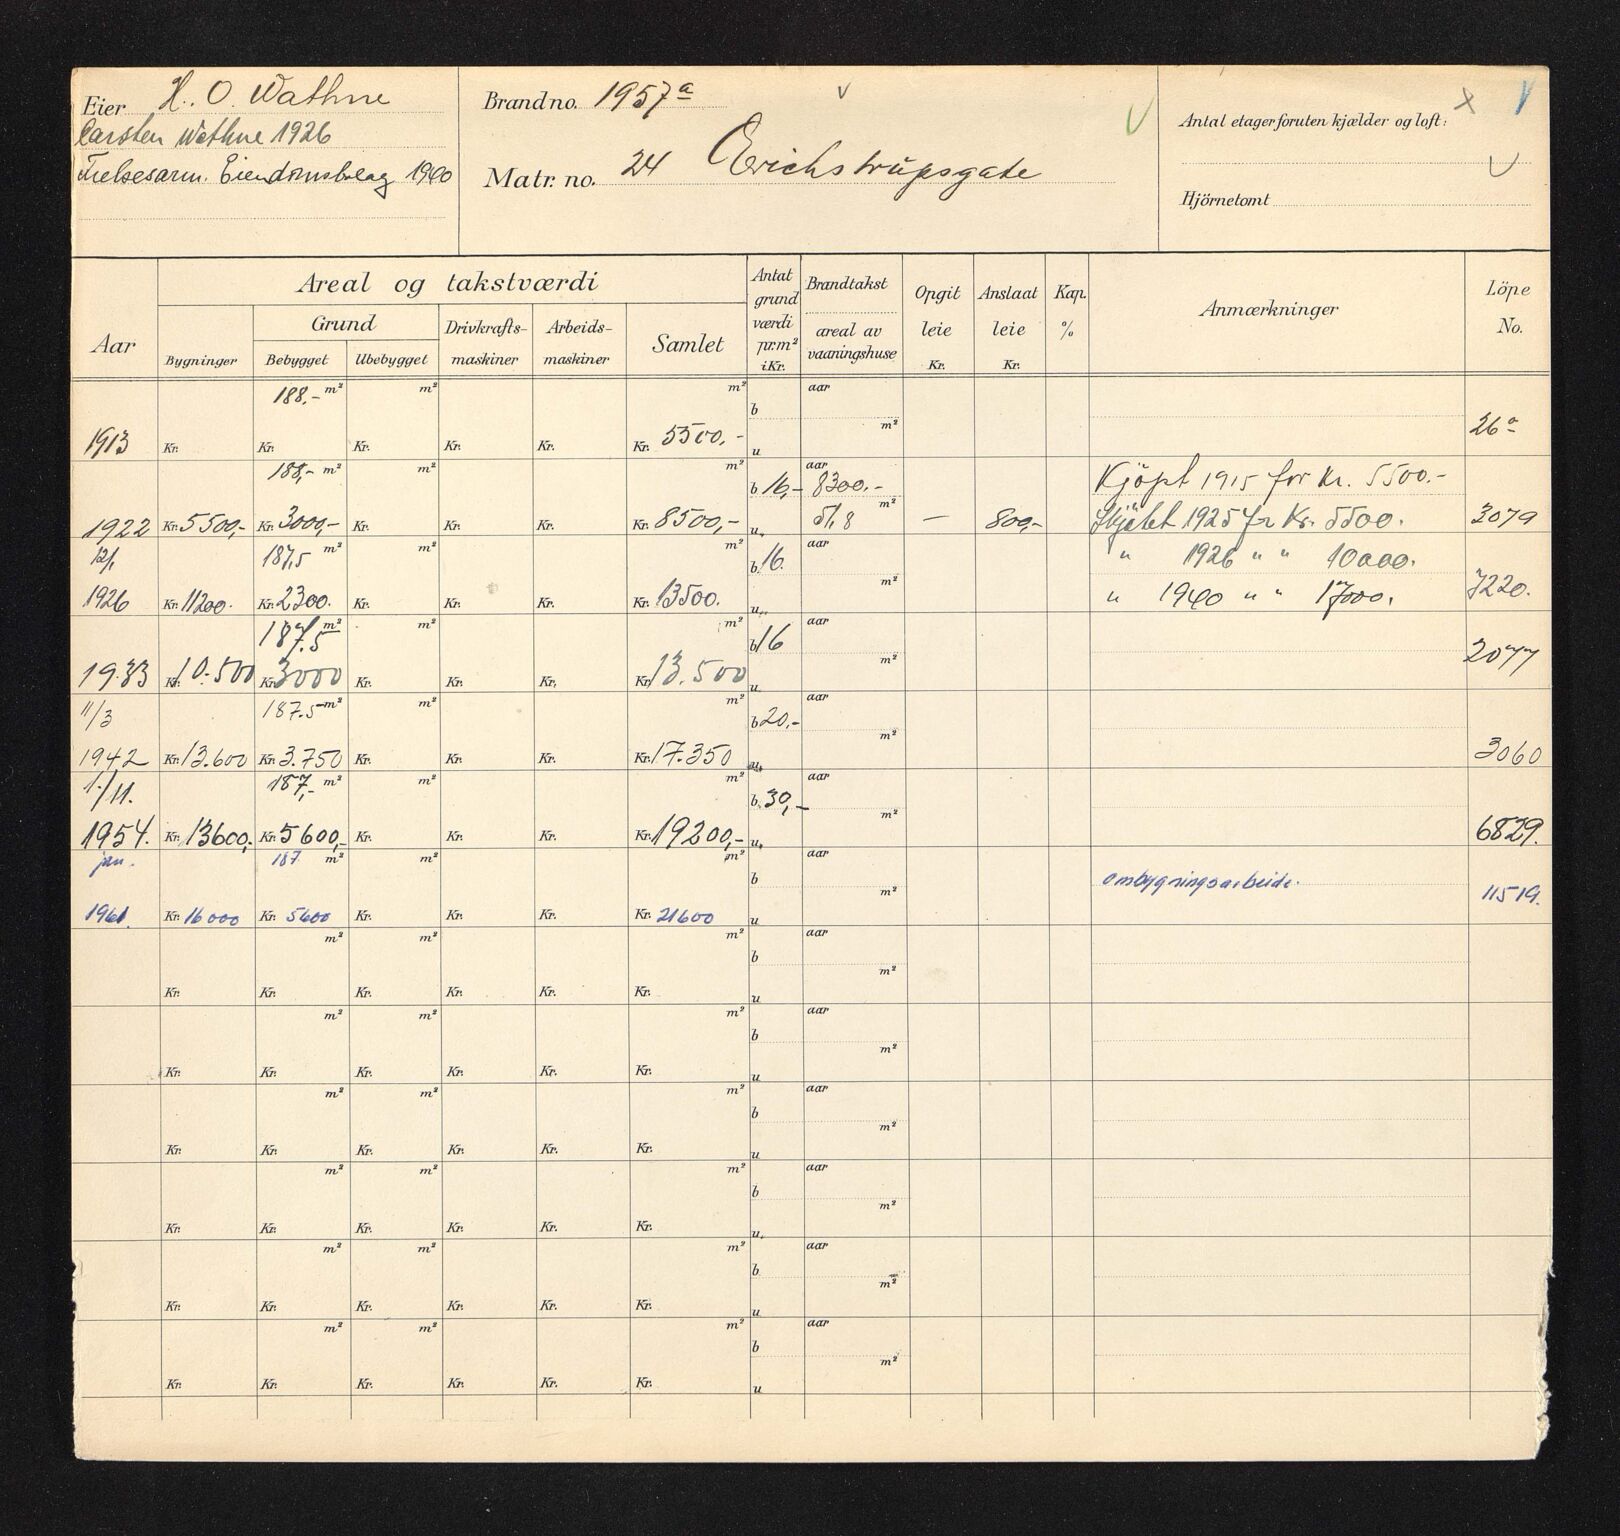 Eier H. O. Wathne
Carsten Wathne 1926
Frelsesarm. Eiendomsbolag 1940
Brandno. 1957 a
Matr. no. 24 Erichstrupsgate
Antal etager foruten kjælder og loft:
Hjörnetomt
Aar
Areal og takstværdi
Bygninger
Grund
Bebygget
Ubebygget
Drivkrafts-
maskiner
Arbeids-
maskiner
Samlet
Antat
grund
værdi
pr. m²
i Kr.
Brandtakst
areal av
vaaningshuse
Opgit
leie
Kr.
Anslaat
leie
Kr.
Kap.
%
Anmærkninger
Löpe
No.
188,- m² m² m² b aar
1913 Kr. Kr. Kr. Kr. Kr. Kr. 5500,- u m² 26 a
188,- m² m² m² b 16,- aar 8300,- Kjöpt 1915 for Kr. 5500.-
1922 Kr. 5500,- Kr. 3000,- Kr. Kr. Kr. Kr. 8500,- u. 51,8 m² — 800,- Skjötet 1925 for Kr. 5500. 3079
12/1 187,5 m² m² m² b. 16. aar " 1926 " " 10000.
1926 Kr. 11200. Kr. 2300. Kr. Kr. Kr. Kr. 13500. u. m² " 1940 " " 17000. 7220.
187.5 m² m² m² b 16 aar
1933 Kr. 10.500 Kr. 3000 Kr. Kr. Kr. Kr. 13.500 u. m² 2077
11/3 187.5 m² m² m² b 20,- aar
1942 Kr. 13.600 Kr. 3.750 Kr. Kr. Kr. Kr. 17.350 u. m² 3060
1./11. 187,- m² m² m² b. 30,- aar
1954. Kr. 13600,- Kr. 5600,- Kr. Kr. Kr. Kr. 19200,- u. m² 6829.
jan. 187 m² m² m² b aar ombygningsarbeide.
1961. Kr. 16000 Kr. 5600 Kr. Kr. Kr. Kr. 21600 u m² 11519.
m² m² m² b aar
Kr. Kr. Kr. Kr. Kr. Kr. u m²
m² m² m² b aar
Kr. Kr. Kr. Kr. Kr. Kr. u m²
m² m² m² b aar
Kr. Kr. Kr. Kr. Kr. Kr. u m²
m² m² m² b aar
Kr. Kr. Kr. Kr. Kr. Kr. u. m²
m² m² m² b aar
Kr. Kr. Kr. Kr. Kr. Kr. u m²
m² m² m² b aar
Kr. Kr. Kr. Kr. Kr. Kr. u m²